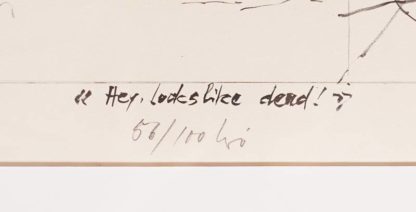 « Hey, looks like dead! »
56/100 Liò